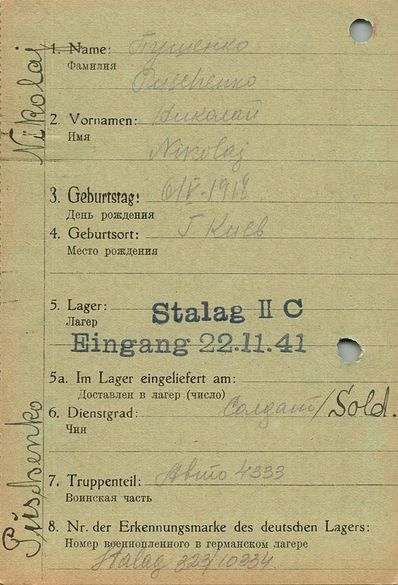 Nikolaj
Puschenko
1. Name: Пущенко
Фамилия
Puschenko
2. Vornamen: Николай
Имя
Nikolaj
3. Geburtstag: 6/V-1918
День рождения
4. Geburtsort: Г Киев
Место рождения
5. Lager: Stalag II C
Лагер
Eingang 22.11.41
5a. Im Lager eingeliefert am:
Доставлен в лагер (число)
6. Dienstgrad: Солдат/Sold.
Чин
7. Truppenteil: Авто 4333
Воинская часть
8. Nr. der Erkennungsmarke des deutschen Lagers:
Номер военнопленного в германском лагере
Stalag 323/10334